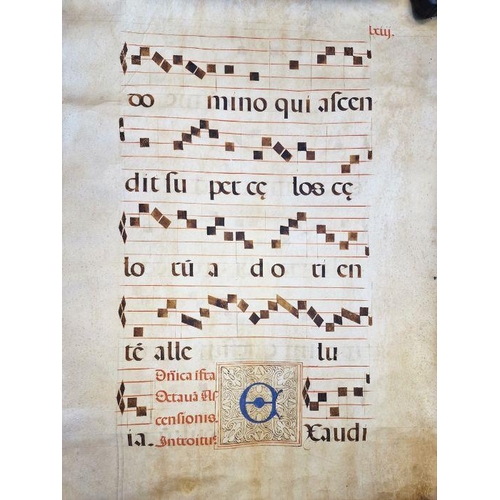 lxiij.
do mino qui ascen
dit su per cę los cę
lo rũ a d o ri en
tẽ alle lu
Dñica ifra
Octauã As
censionis.
Introitus
ia. E Xaudi